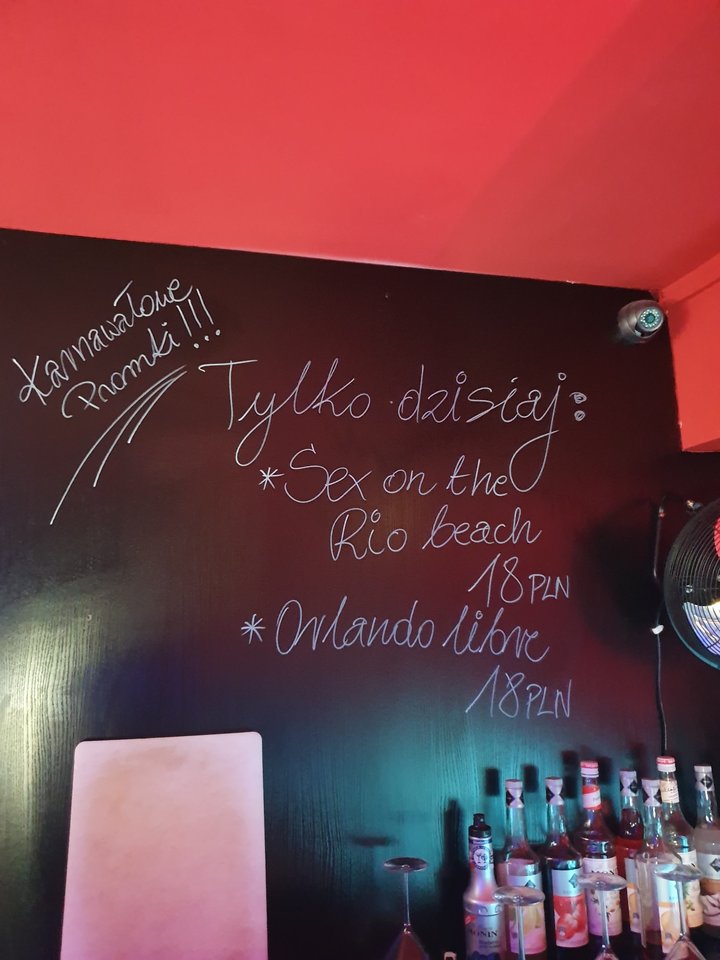 Karnawałowe
Promki!!!
Tylko dzisiaj:
*Sex on the
Rio beach
18 PLN
*Orlando libre
18 PLN
MONIN